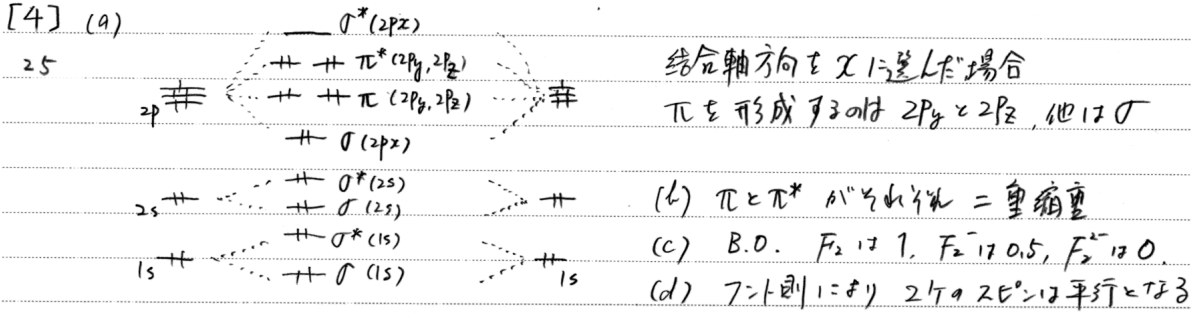 [4] (a)
25
σ*(2px)
π*(2Py,2Pz)
π(2Py,2Pz)
2p
σ(2px)
σ*(2s)
2s
σ(2s)
σ*(1s)
1s
σ(1s)
1s
結合軸方向をxに選んだ場合
πを形成するのは2Pyと2Pz,他はσ
(b) πとπ*がそれぞれ二重縮重
(c) B.O. F₂は1, F₂⁻は0.5, F₂²⁻は0.
(d) フント則により2ケのスピンは平行となる